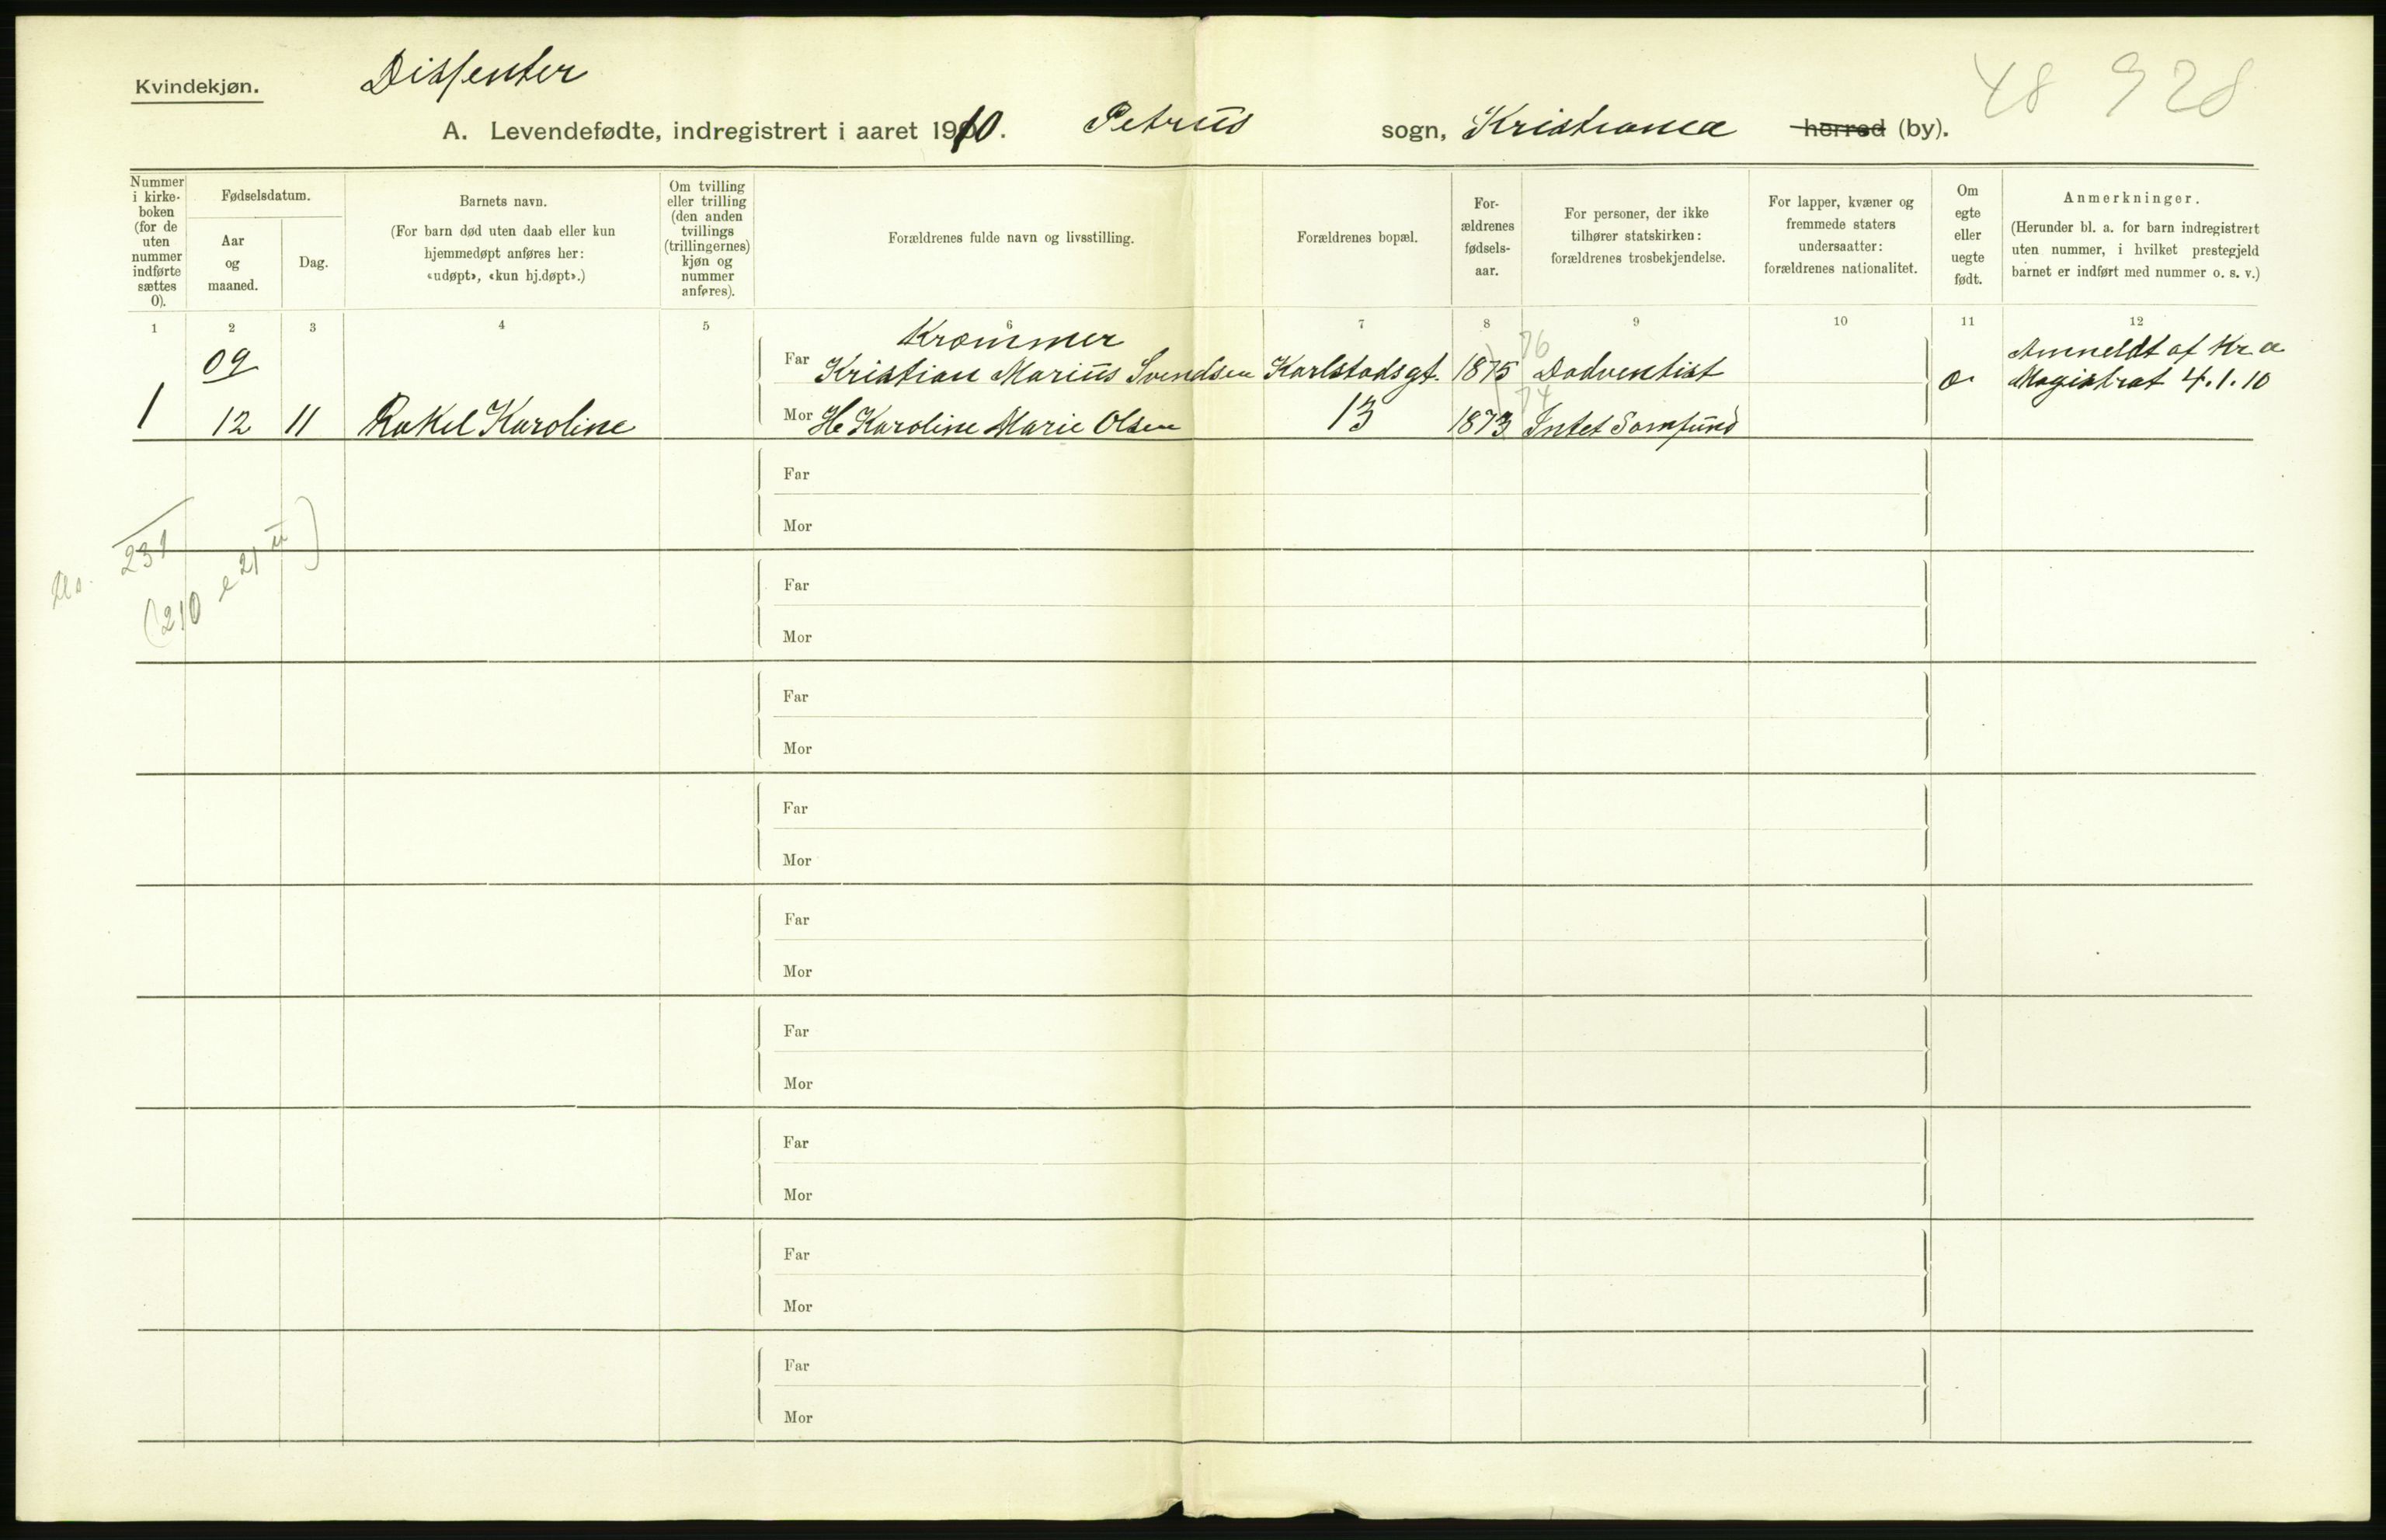 Kvindekjøn.
Dissenter
48 928
A. Levendefødte, indregistrert i aaret 1910. Petrus sogn, Kristiania herred (by).
Nummer i kirke-boken (for de uten nummer indførte sættes 0).
Fødselsdatum.
Aar og maaned.
Dag.
Barnets navn.
(For barn død uten daab eller kun hjemmedøpt anføres her: «udøpt», «kun hj.døpt».)
Om tvilling eller trilling (den anden tvillings (trillingernes) kjøn og nummer anføres).
Forældrenes fulde navn og livsstilling.
Forældrenes bopæl.
For-ældrenes fødsels-aar.
For personer, der ikke tilhører statskirken: forældrenes trosbekjendelse.
For lapper, kvæner og fremmede staters undersaatter: forældrenes nationalitet.
Om egte eller uegte født.
Anmerkninger.
(Herunder bl. a. for barn indregistrert uten nummer, i hvilket prestegjeld barnet er indført med nummer o. s. v.)
1 2 3 4 5 6 7 8 9 10 11 12
09 Kræmmer 76 Anmeldt af Kr a
Far Kristian Marius Svendsen Karlstadsgt. 1875 Dadventist Magistrat 4.1.10
1 12 11 Rakel Karoline Mor H Karoline Marie Olsen 13 1873 74 Intet Samfund
Far
Mor
231
(210 e 21)
Far
Mor
Far
Mor
Far
Mor
Far
Mor
Far
Mor
Far
Mor
Far
Mor
Far
Mor